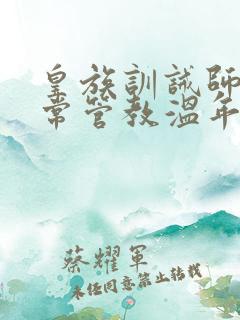 皇族訓誡師
常管教溫年
蔡耀軍
未任同意禁止转载